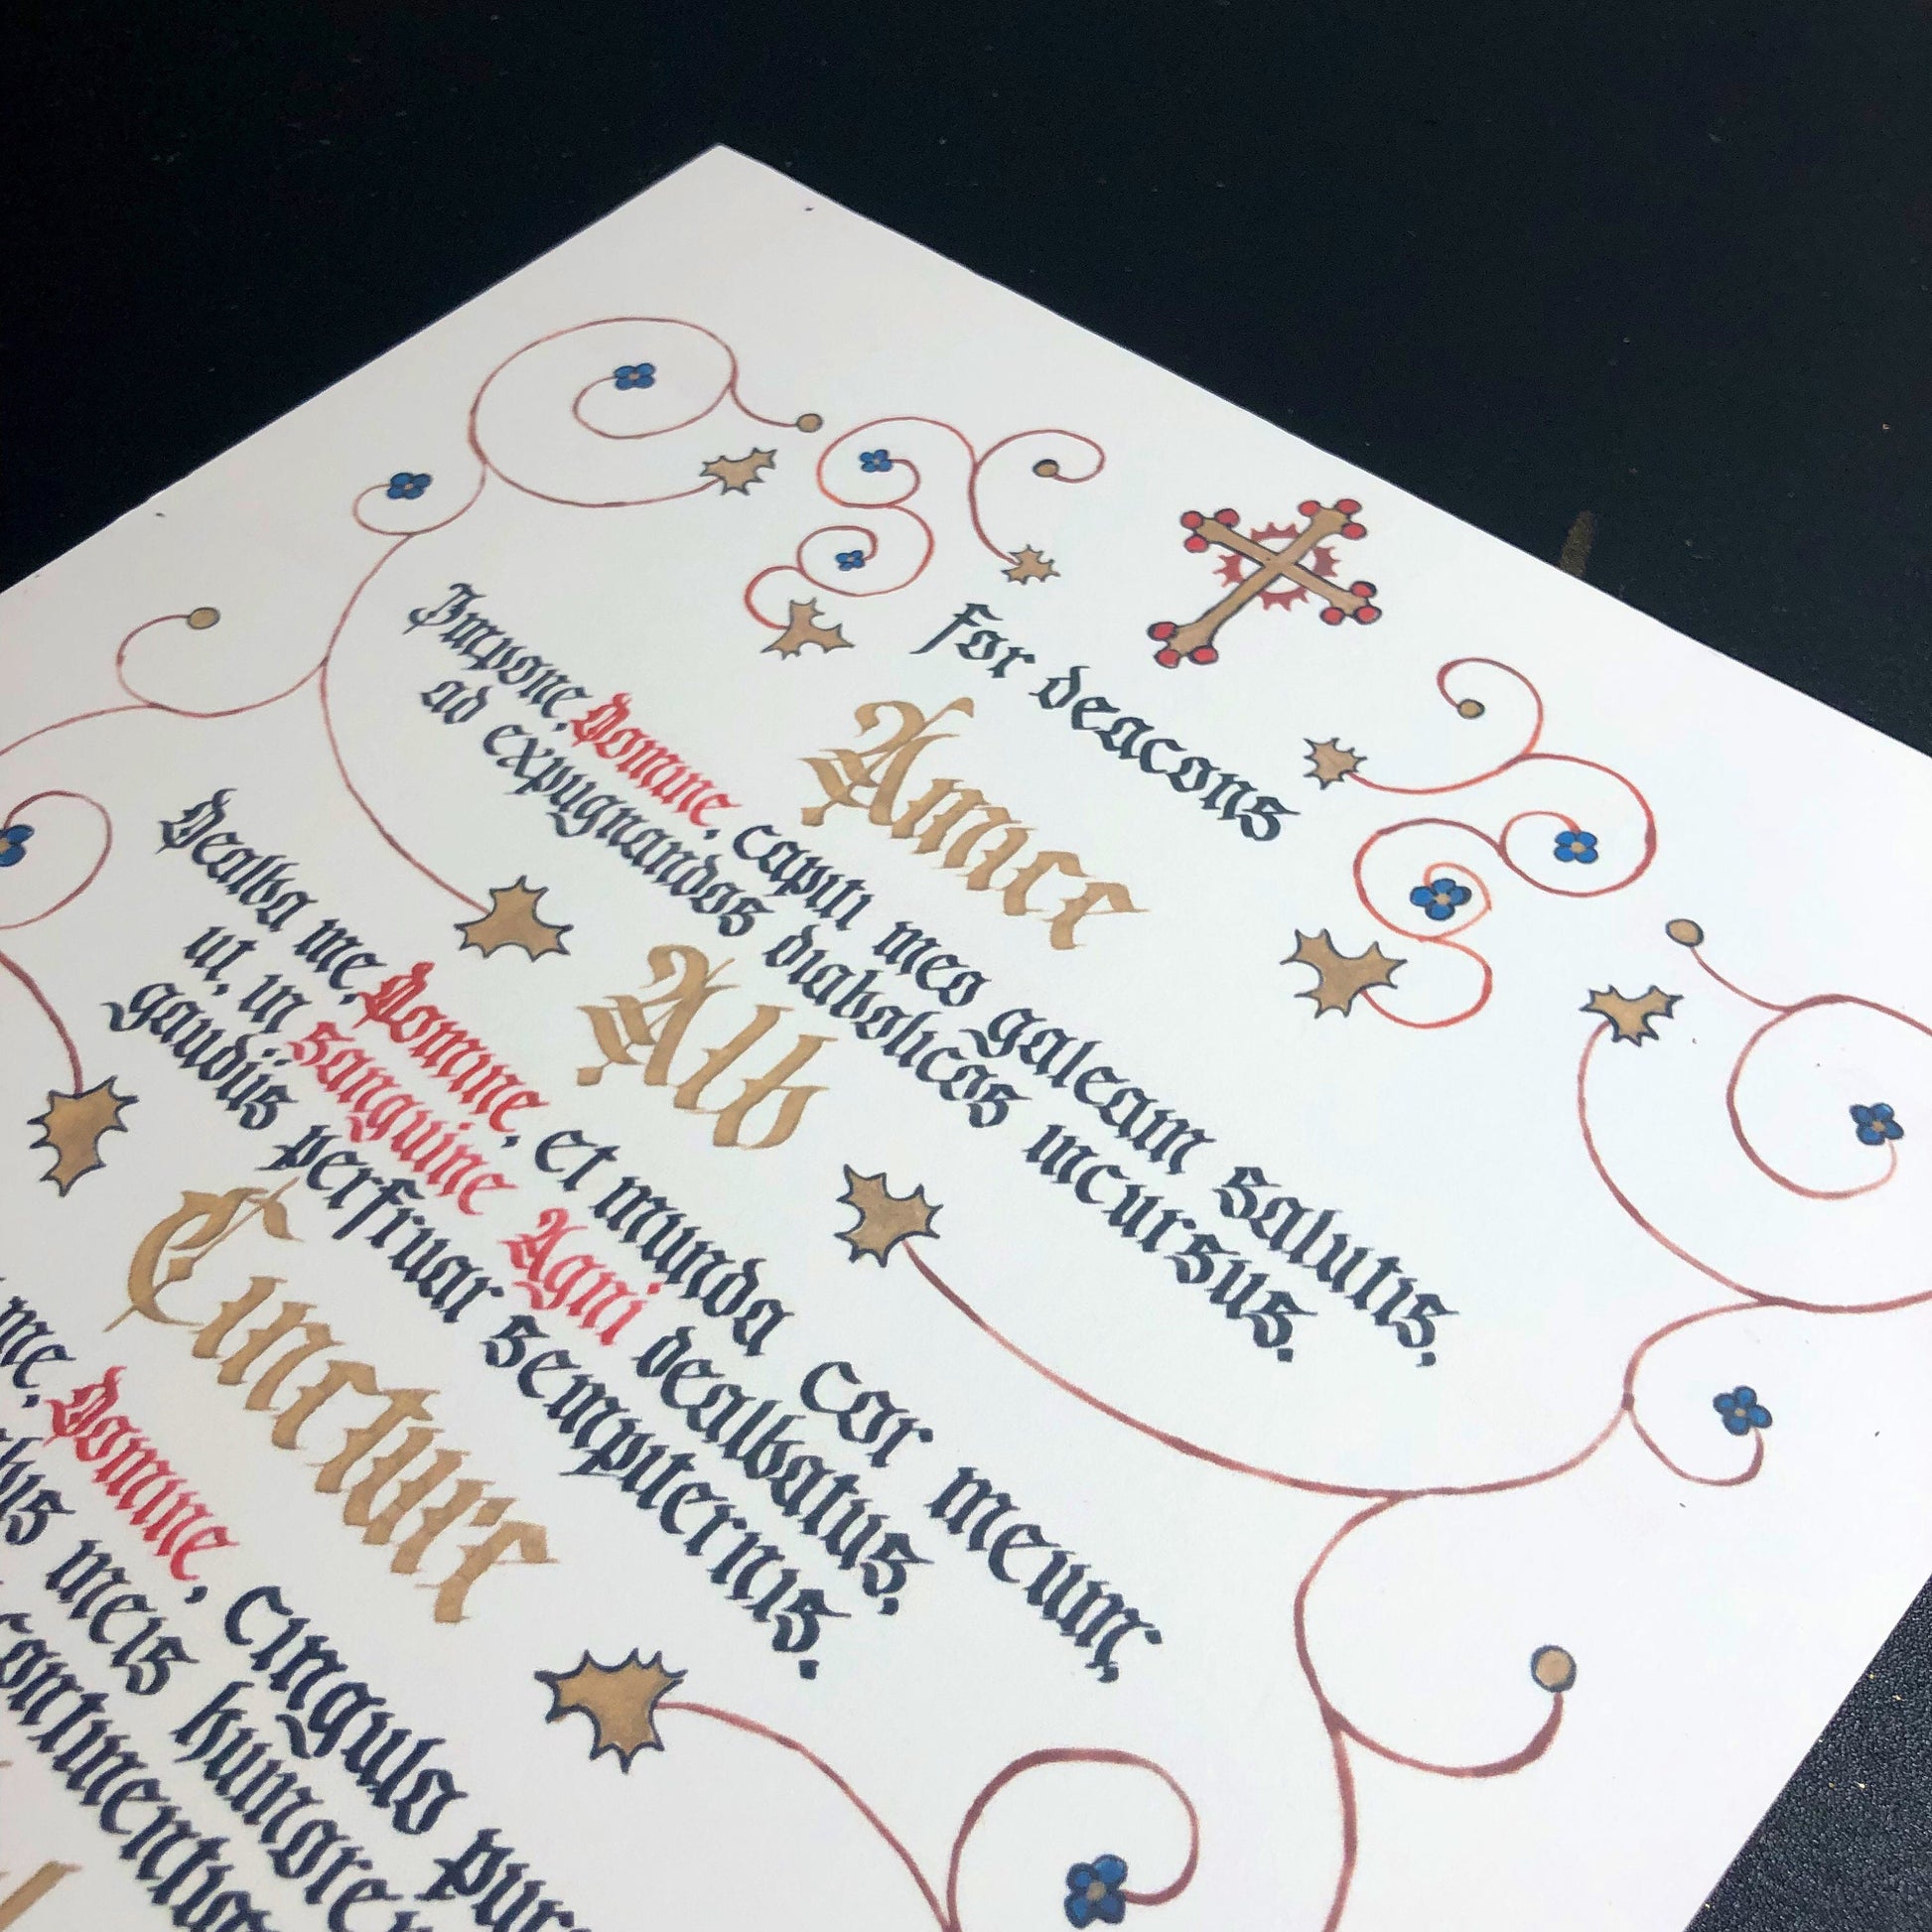 for deacons
Amice
Impone, Domine, capiti meo galeam salutis,
ad expugnandos diabolicos incursus.
Alb
Dealba me, Domine, et munda cor meum,
ut, in Sanguine Agni dealbatus,
gaudiis perfruar sempiternis.
Cincture
me, Domine, cingulo pur
meis humore